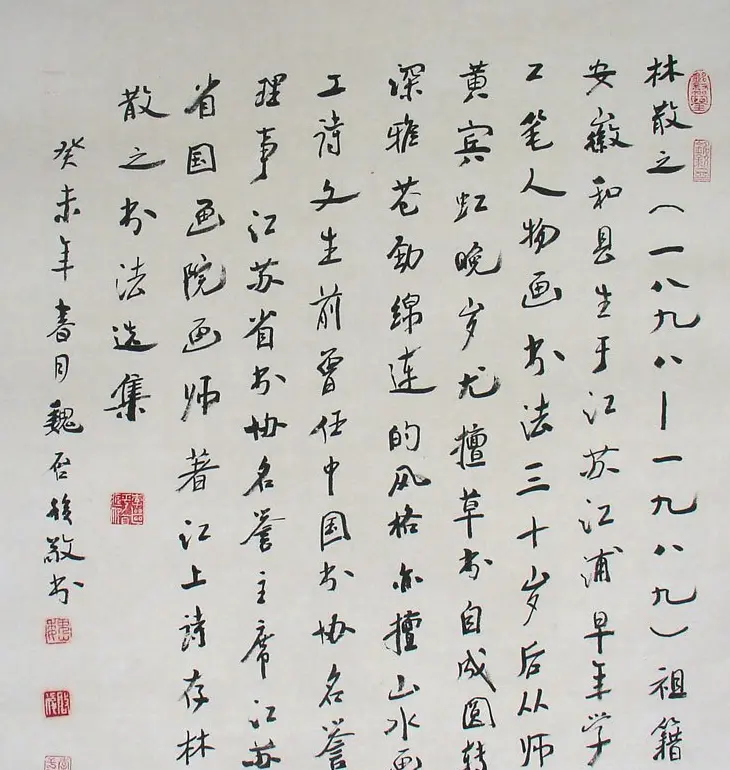 林散之（一八九八—一九八九）祖籍
安徽和县生于江苏江浦早年学
工笔人物画书法三十岁后从师
黄宾虹晚岁尤擅草书自成圆转
深雅苍劲绵连的风格亦擅山水画
工诗文生前曾任中国书协名誉
理事江苏省书协名誉主席江苏
省国画院画师著江上诗存林
散之书法选集
癸未年春月魏启后敬书